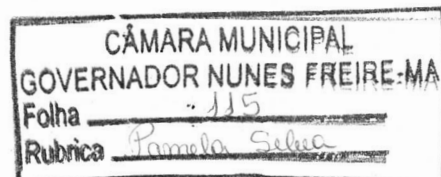 CÂMARA MUNICIPAL
GOVERNADOR NUNES FREIRE-MA
Folha 115
Rubrica Pamela Silva